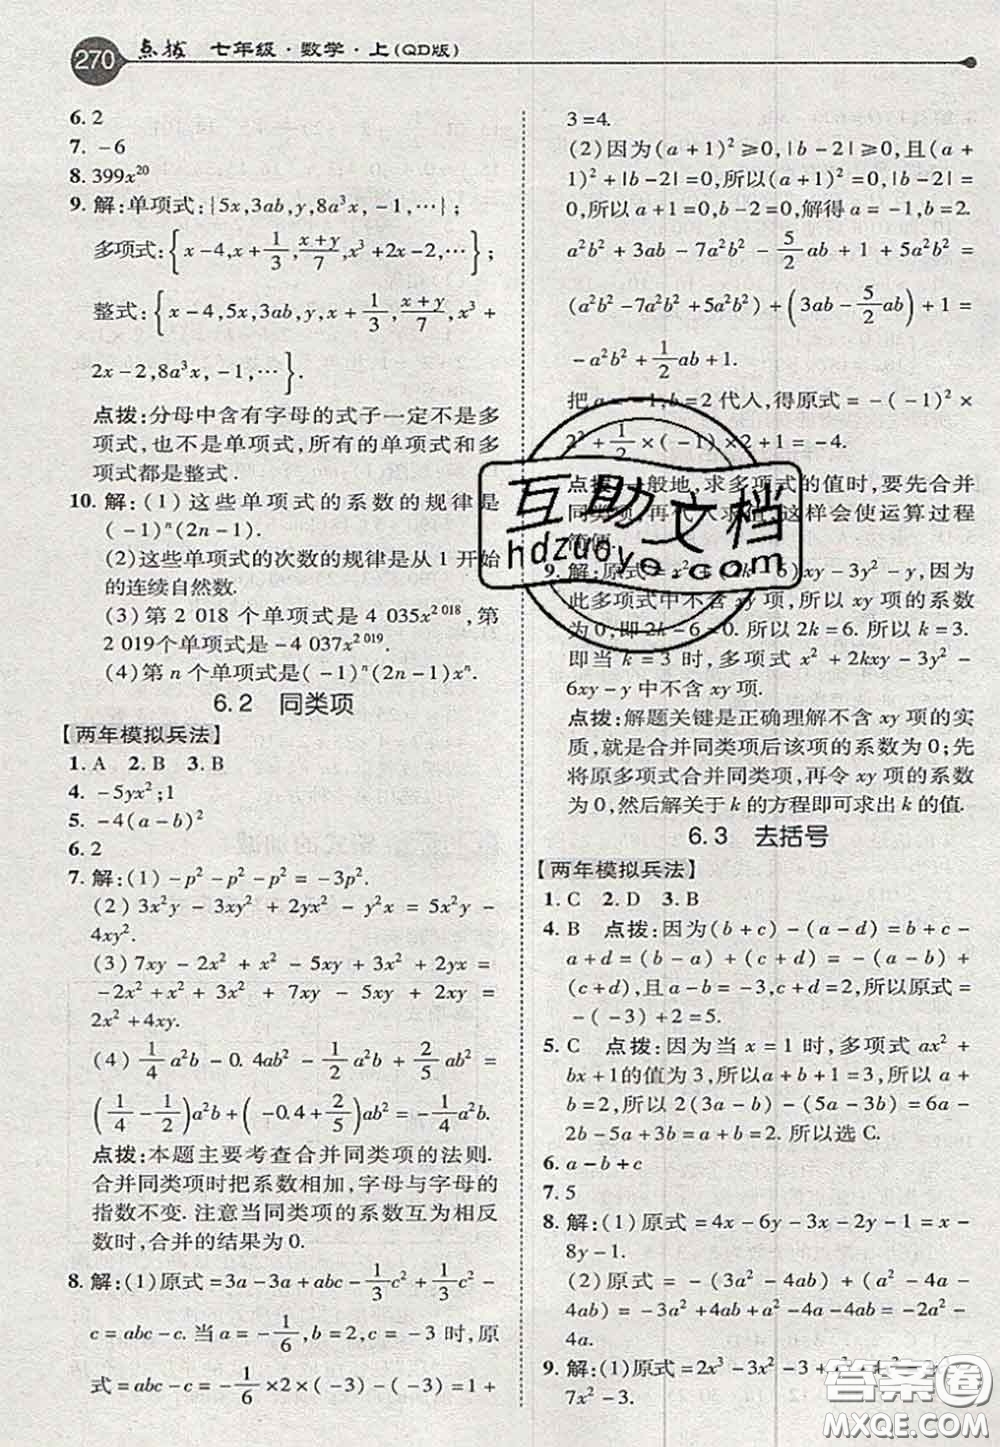 270 点拨 七年级·数学·上(QD版)
6. 2
7. -6
8. 399x²⁰
9. 解:单项式:{5x,3ab,y,8a³x,-1,…};
多项式:{x-4,x+1/3,(x+y)/7,x³+2x-2,…};
整式:{x-4,5x,3ab,y,x+1/3,(x+y)/7,x³+
2x-2,8a³x,-1,…}.
点拨:分母中含有字母的式子一定不是多
项式,也不是单项式,所有的单项式和多
项式都是整式.
10. 解:(1)这些单项式的系数的规律是
(-1)ⁿ(2n-1).
(2)这些单项式的次数的规律是从1开始
的连续自然数.
(3)第2 018个单项式是4 035x²⁰¹⁸,第
2 019个单项式是-4 037x²⁰¹⁹.
(4)第n个单项式是(-1)ⁿ(2n-1)xⁿ.
6.2 同类项
【两年模拟兵法】
1. A 2. B 3. B
4. -5yx²;1
5. -4(a-b)²
6. 2
7. 解:(1)-p²-p²-p²=-3p².
(2)3x²y-3xy²+2yx²-y²x=5x²y-
4xy².
(3)7xy-2x²+x²-5xy+3x²+2xy=
-2x²+x²+3x²+7xy-5xy+2xy=
2x²+4xy.
(4)1/4a²b-0.4ab²-1/2a²b+2/5ab²=
(1/4-1/2)a²b+(-0.4+2/5)ab²=-1/4a²b.
点拨:本题主要考查合并同类项的法则.
合并同类项时把系数相加,字母与字母的
指数不变.注意当同类项的系数互为相反
数时,合并的结果为0.
8. 解:(1)原式=3a-3a+abc-1/3c²+1/3c²-
c=abc-c.当a=-1/6,b=2,c=-3时,原
式=abc-c=-1/6×2×(-3)-(-3)=1+
3=4.
(2)因为(a+1)²≥0,|b-2|≥0,且(a+
1)²+|b-2|=0,所以(a+1)²=0,|b-2|=
0.所以a+1=0,b-2=0,解得a=-1,b=2.
a²b²+3ab-7a²b²-5/2ab+1+5a²b²=
(a²b²-7a²b²+5a²b²)+(3ab-5/2ab)+1=
-a²b²+1/2ab+1.
把a=-1,b=2代入,得原式=-(-1)²×
2²+1/2×(-1)×2+1=-4.
点拨:一般地,求多项式的值时,要先合并
同类项,再代入求值,这样会使运算过程
简便.
9. 解:原式=x²+(2k-6)xy-3y²-y,因为
此多项式中不含xy项,所以xy项的系数
为0,即2k-6=0.所以2k=6.所以k=3.
即当k=3时,多项式x²+2kxy-3y²-
6xy-y中不含xy项.
点拨:解题关键是正确理解不含xy项的实
质,就是合并同类项后该项的系数为0;先
将原多项式合并同类项,再令xy项的系数
为0,然后解关于k的方程即可求出k的值.
6.3 去括号
【两年模拟兵法】
1. C 2. D 3. B
4. B 点拨:因为(b+c)-(a-d)=b+c-
a+d=(b-a)+(c+d)=-(a-b)+
(c+d),且a-b=-3,c+d=2,所以原式=
-(-3)+2=5.
5. C 点拨:因为当x=1时,多项式ax²+
bx+1的值为3,所以a+b+1=3,所以a+
b=2,所以2(3a-b)-(5a-3b)=6a-
2b-5a+3b=a+b=2.所以选C.
6. a-b+c
7. 5
8. 解:(1)原式=4x-6y-3x-2y-1=x-
8y-1.
(2)原式=-(3a²-4ab)+(a²-4a-
4ab)=-3a²+4ab+a²-4a-4ab=-2a²-
4a.
9. 解:(1)原式=2x³-3x²-3+
7x²-3.
互助文档
hdzuoye.com
答案圈
MXQE.COM